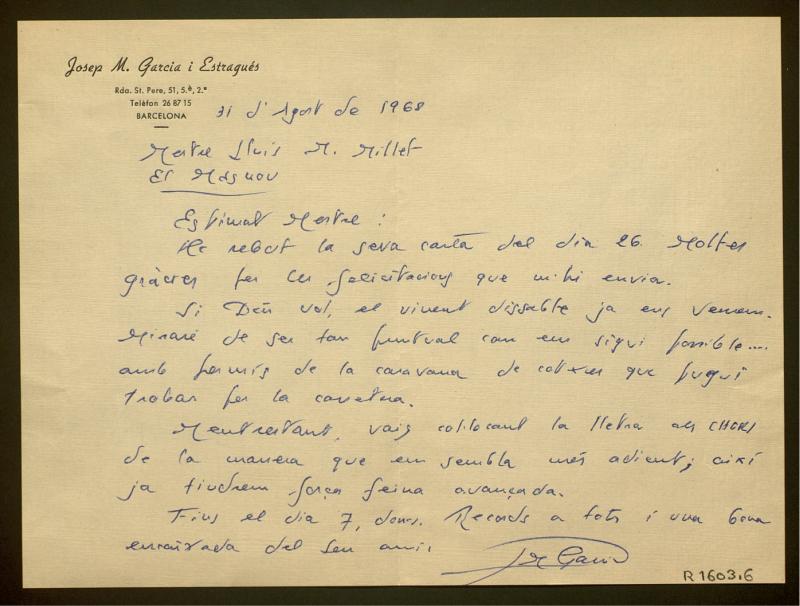 Josep M. Garcia i Estragués
Rda. St. Pere, 51, 5.è, 2.ª
Telèfon 26 87 15
BARCELONA
31 d'Agost de 1968
Mestre Lluis M. Millet
El Masnou
Estimat Mestre:
He rebut la seva carta del dia 26. Moltes
gràcies per les felicitacions que m'hi envia.
Si Déu vol, el vinent dissabte ja ens veurem.
Miraré de ser tan puntual com em sigui possible....
amb permís de la caravana de cotxes que pugui
trobar per la carretera.
Mentrestant, vaig col·locant la lletra als CHORS
de la manera que em sembla més adient; així
ja tindrem força feina avançada.
Fins el dia 7, doncs. Records a tots i una bona
encaixada del seu amic
JM Garcia
R 1603,6